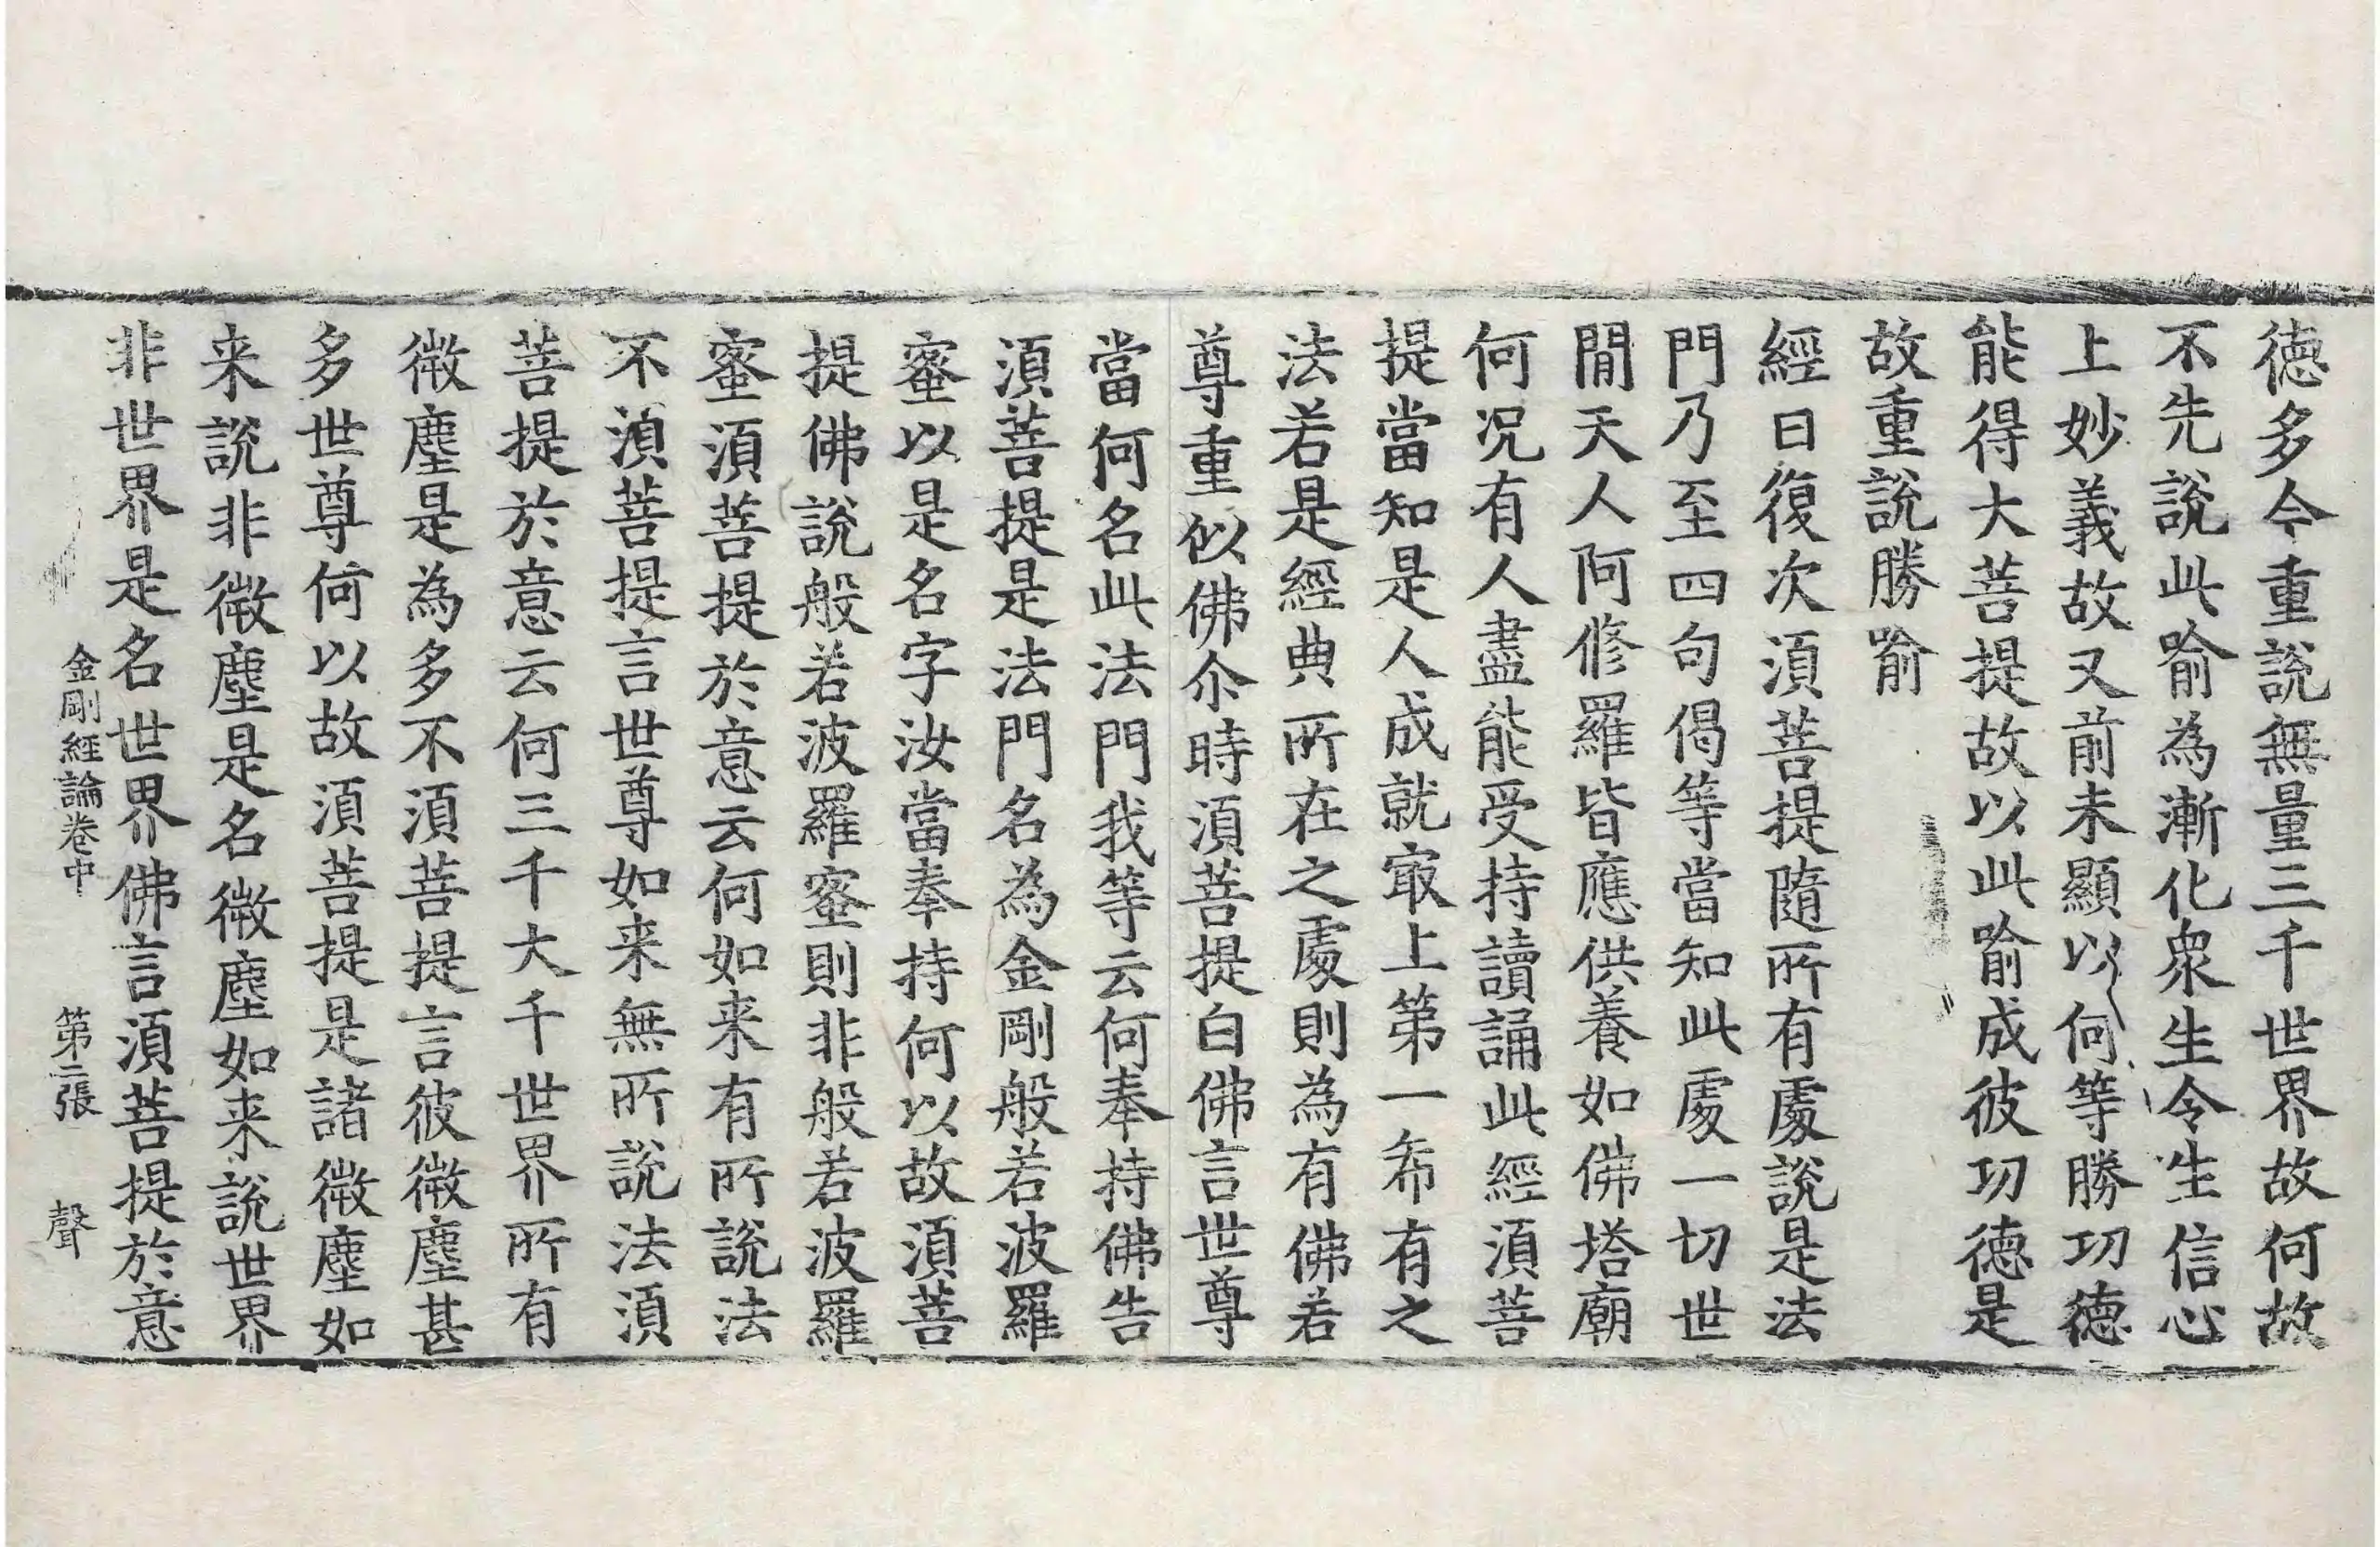 德多今重說無量三千世界故何故
不先說此喻為漸化眾生令生信心
上妙義故又前未顯以何等勝功德
能得大菩提故以此喻成彼功德是
故重說勝喻
經曰復次須菩提隨所有處說是法
門乃至四句偈等當知此處一切世
閒天人阿修羅皆應供養如佛塔廟
何况有人盡能受持讀誦此經須菩
提當知是人成就㝡上第一希有之
法若是經典所在之處則為有佛若
尊重似佛尒時須菩提白佛言世尊
當何名此法門我等云何奉持佛告
須菩提是法門名為金剛般若波羅
蜜以是名字汝當奉持何以故須菩
提佛說般若波羅蜜則非般若波羅
蜜須菩提於意云何如来有所說法
不須菩提言世尊如来無所說法須
菩提於意云何三千大千世界所有
微塵是為多不須菩提言彼微塵甚
多世尊何以故須菩提是諸微塵如
来說非微塵是名微塵如来說世界
非世界是名世界佛言須菩提於意
金剛經論卷中 第二張 聲